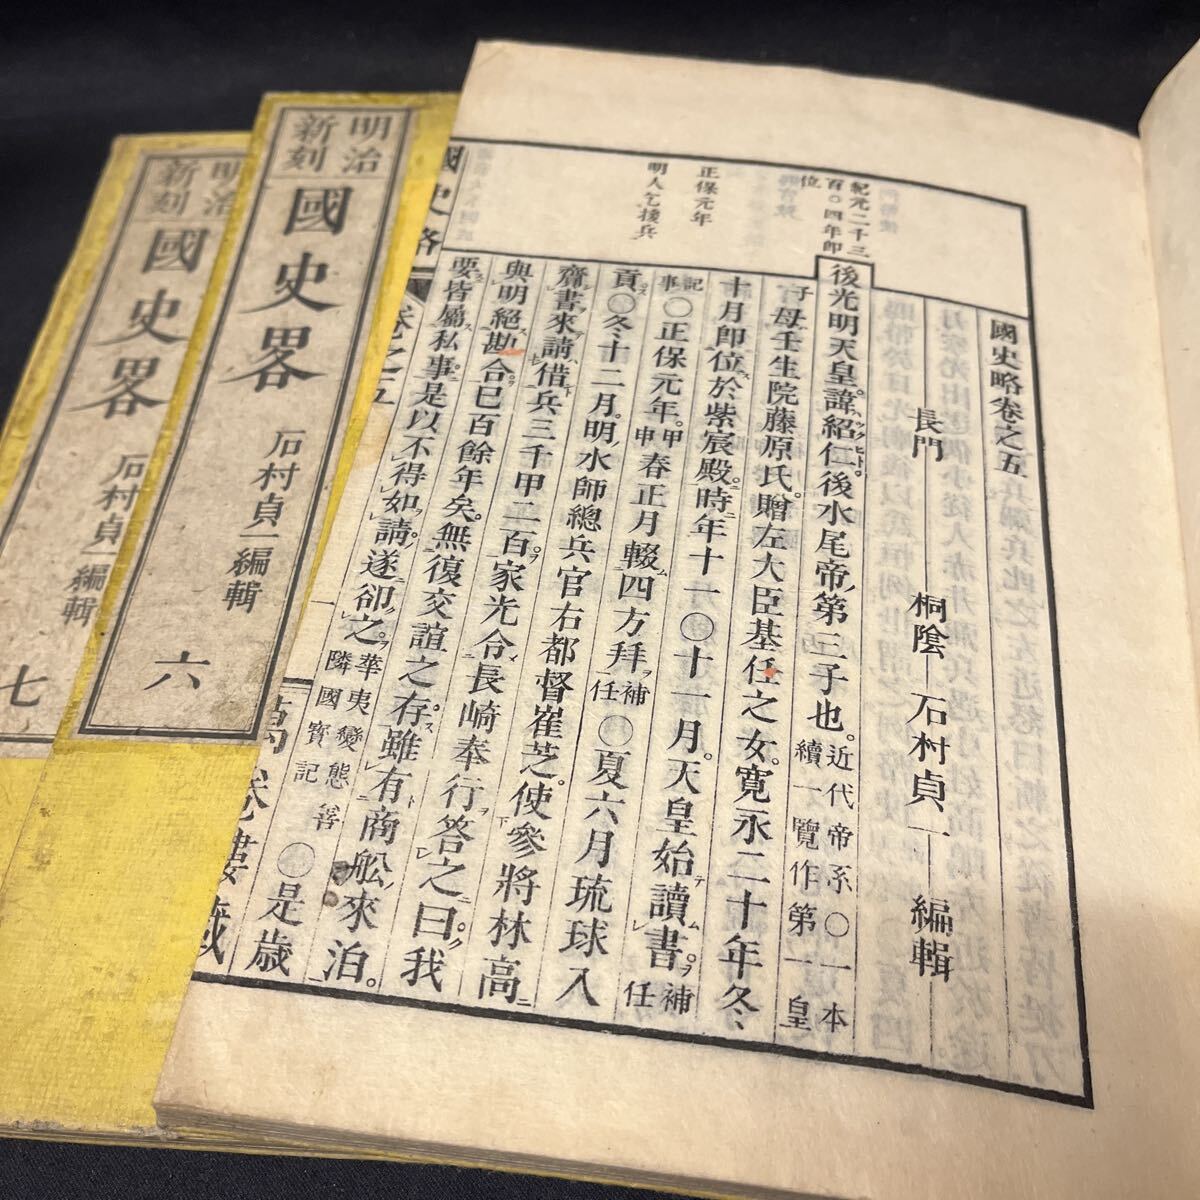 國史略卷之五
長門 桐陰 石村貞一 編輯
後光明天皇。諱紹仁。後水尾帝ノ第三子也。近代帝系〇一本續一覽作第一皇
子母壬生院藤原氏。贈左大臣基任之女。寬永二十年冬、
十月即位於紫宸殿。時年十一〇十一月。天皇始讀書。補任
記事〇正保元年。甲申春正月輟四方拜補任〇夏六月琉球入
貢〇冬十二月。明ノ水師總兵官右都督崔芝。使參將林高
齎書來請借兵三千甲二百。家光令長崎奉行答之曰。我
與明絕勘合已百餘年矣。無復交誼之存。雖有商舩ノ來泊。
要皆屬私事是以不得如請。遂卻之。華夷變態隣國寶記〇是歲
紀元二千三百〇四年即位
正保元年
明人乞援兵
國史略
卷之五
一
明治新刻 國史畧 石村貞一編輯 六
明治新刻 國史畧 石村貞一編輯 七